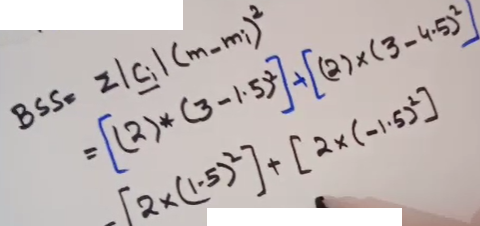 BSS= Σ|Ci|(m-mi)²
=[(2)*(3-1.5)²]+[(2)×(3-4.5)²]
=[2×(1.5)²]+[2×(-1.5)²]